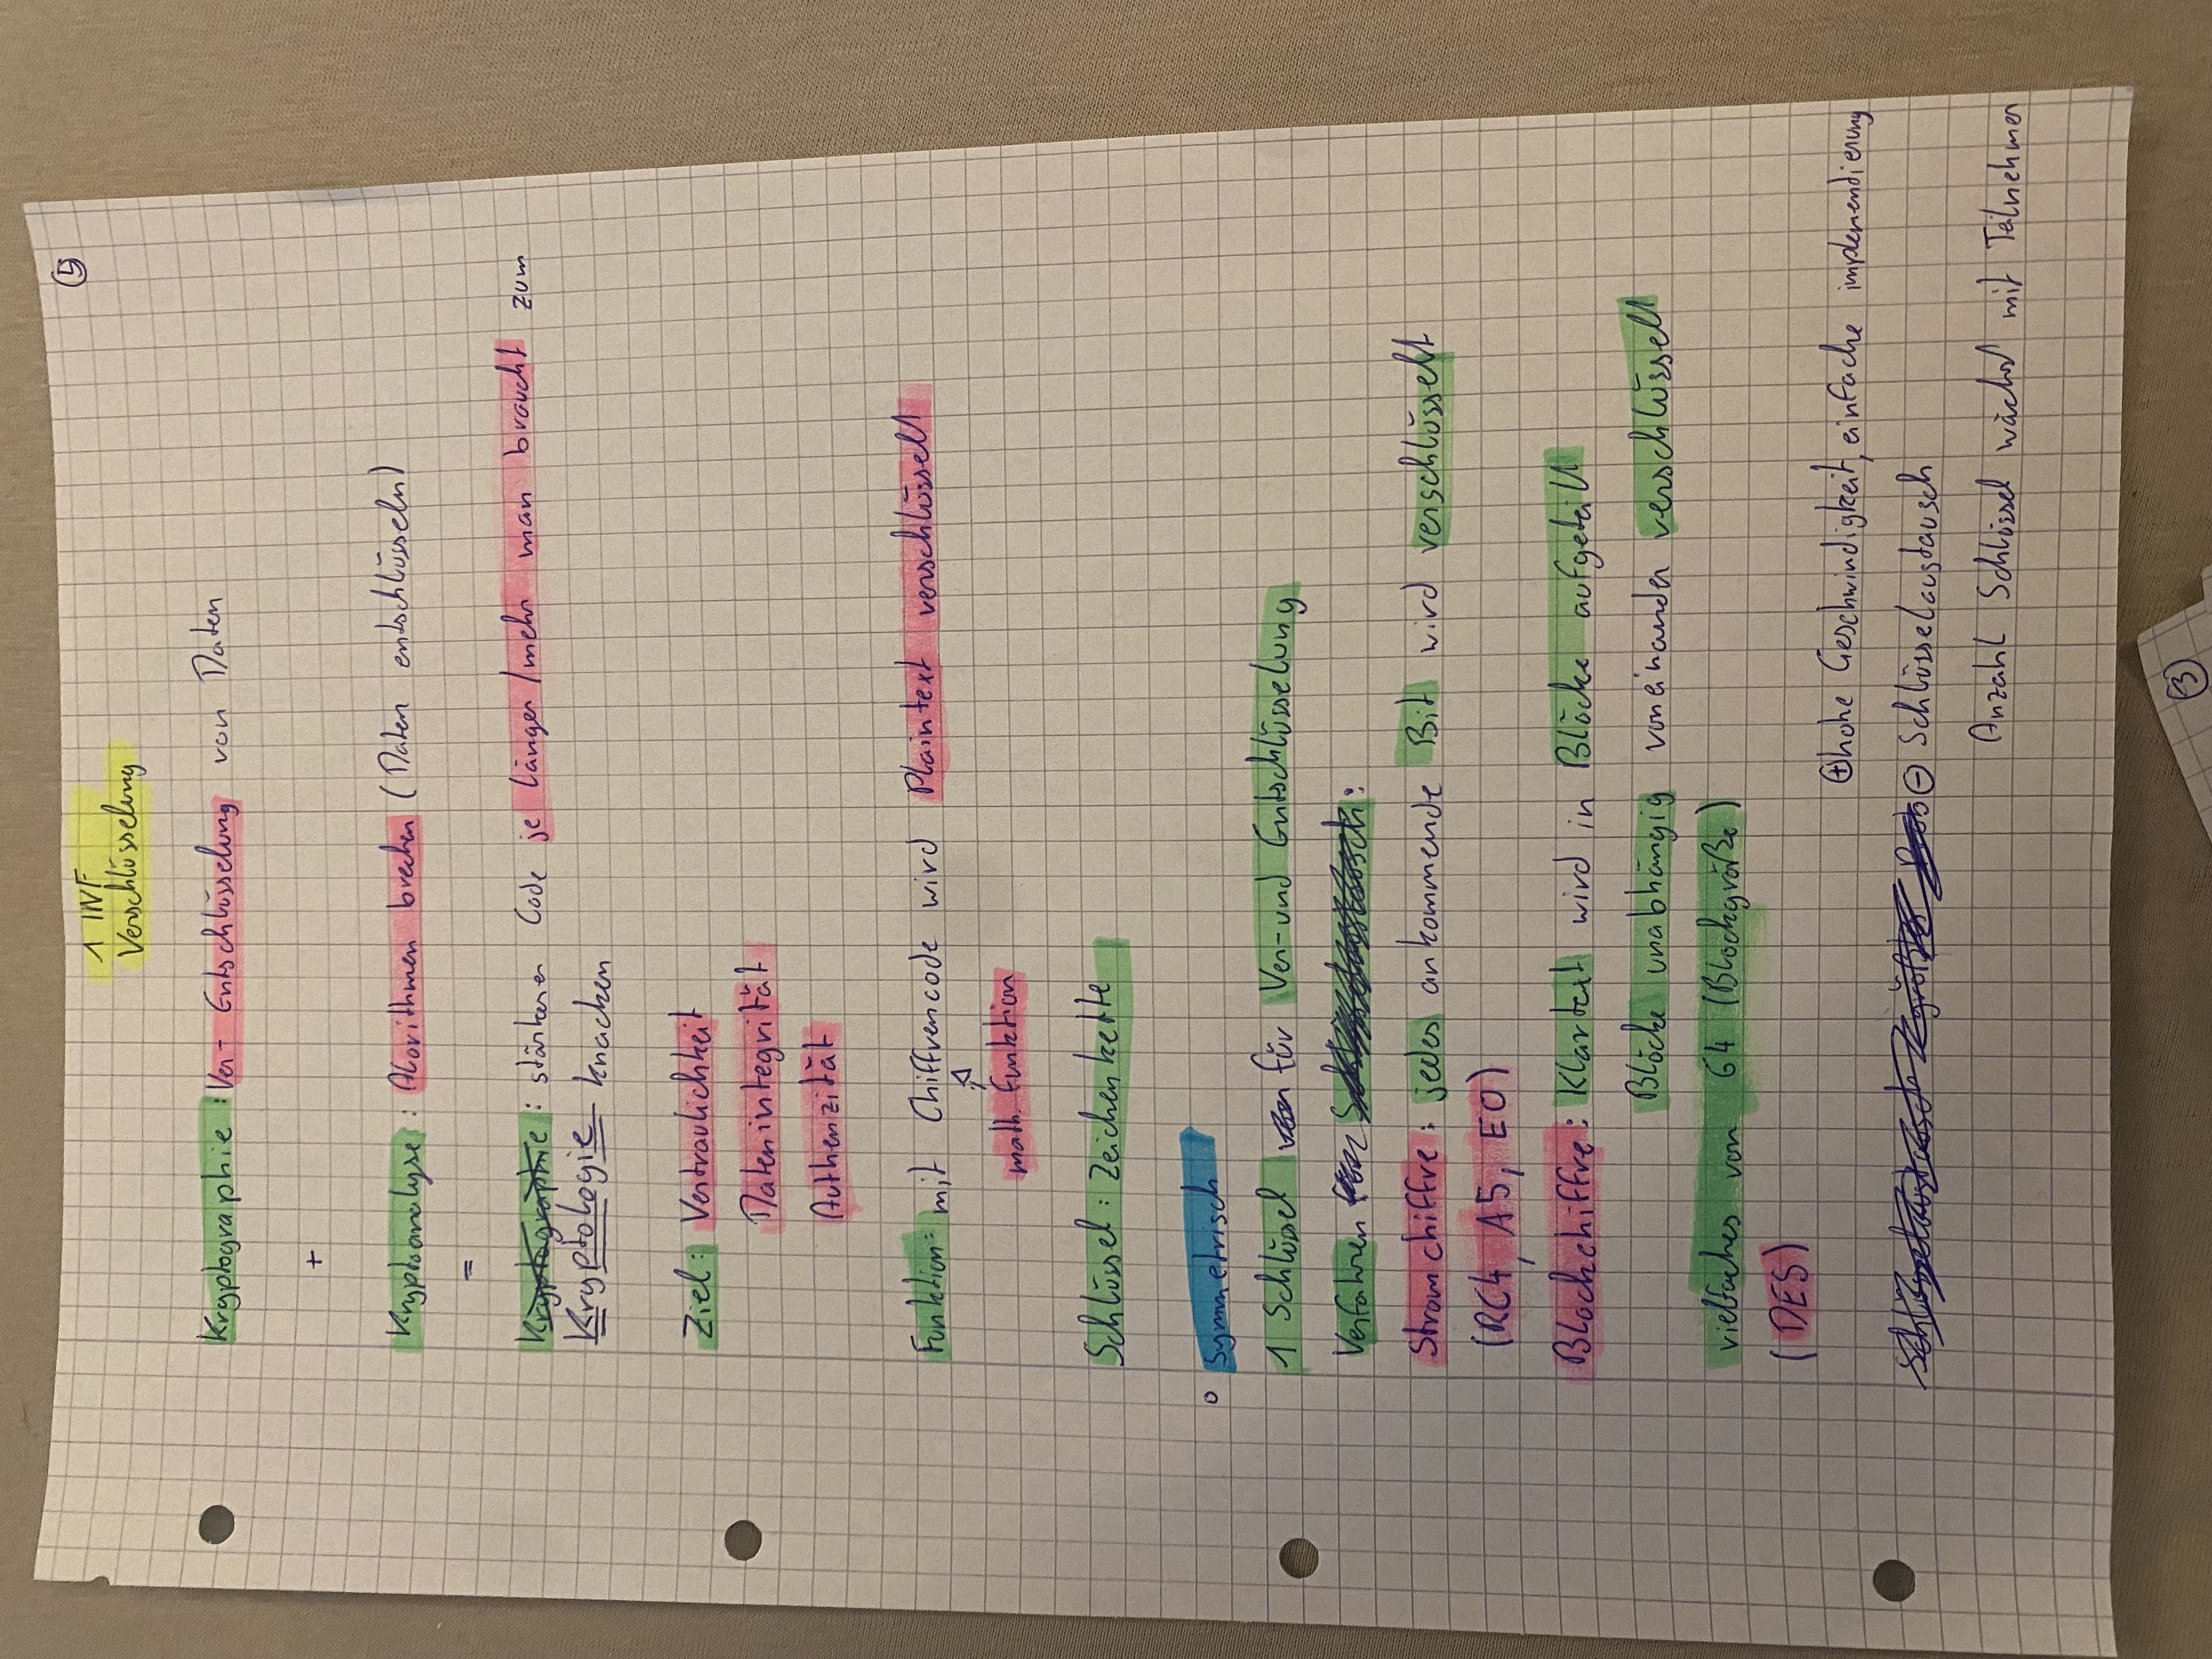 5
1 INF
Verschlüsselung
Kryptographie: Ver- Entschlüsselung von Daten
+
Kryptoanalyse: Alorithmen brechen (Daten entschlüsseln)
=
Kryptographie: stärkerer Code je länger/mehr man braucht zum
Kryptologie knacken
Ziel: Vertraulichkeit
Datenintegrität
Authenzität
Funktion: mit Chiffrencode wird Plaintext verschlüsselt
math. Funktion
Schlüssel: Zeichenkette
Symmetrisch
1 Schlüssel für Ver- und Entschlüsselung
Verfahren :
Stromchiffre: jedes ankommende Bit wird verschlüsselt
(RC4, A5, E0)
Blockchiffre: Klartext wird in Blöcke aufgeteilt
Blöcke unabhängig voneinander verschlüsselt
vielfaches von 64 (Blockgröße)
(DES)
+ hohe Geschwindigkeit, einfache implemendierung
- Schlüsselaustausch
Anzahl Schlüssel wächst mit Teilnehmer
3